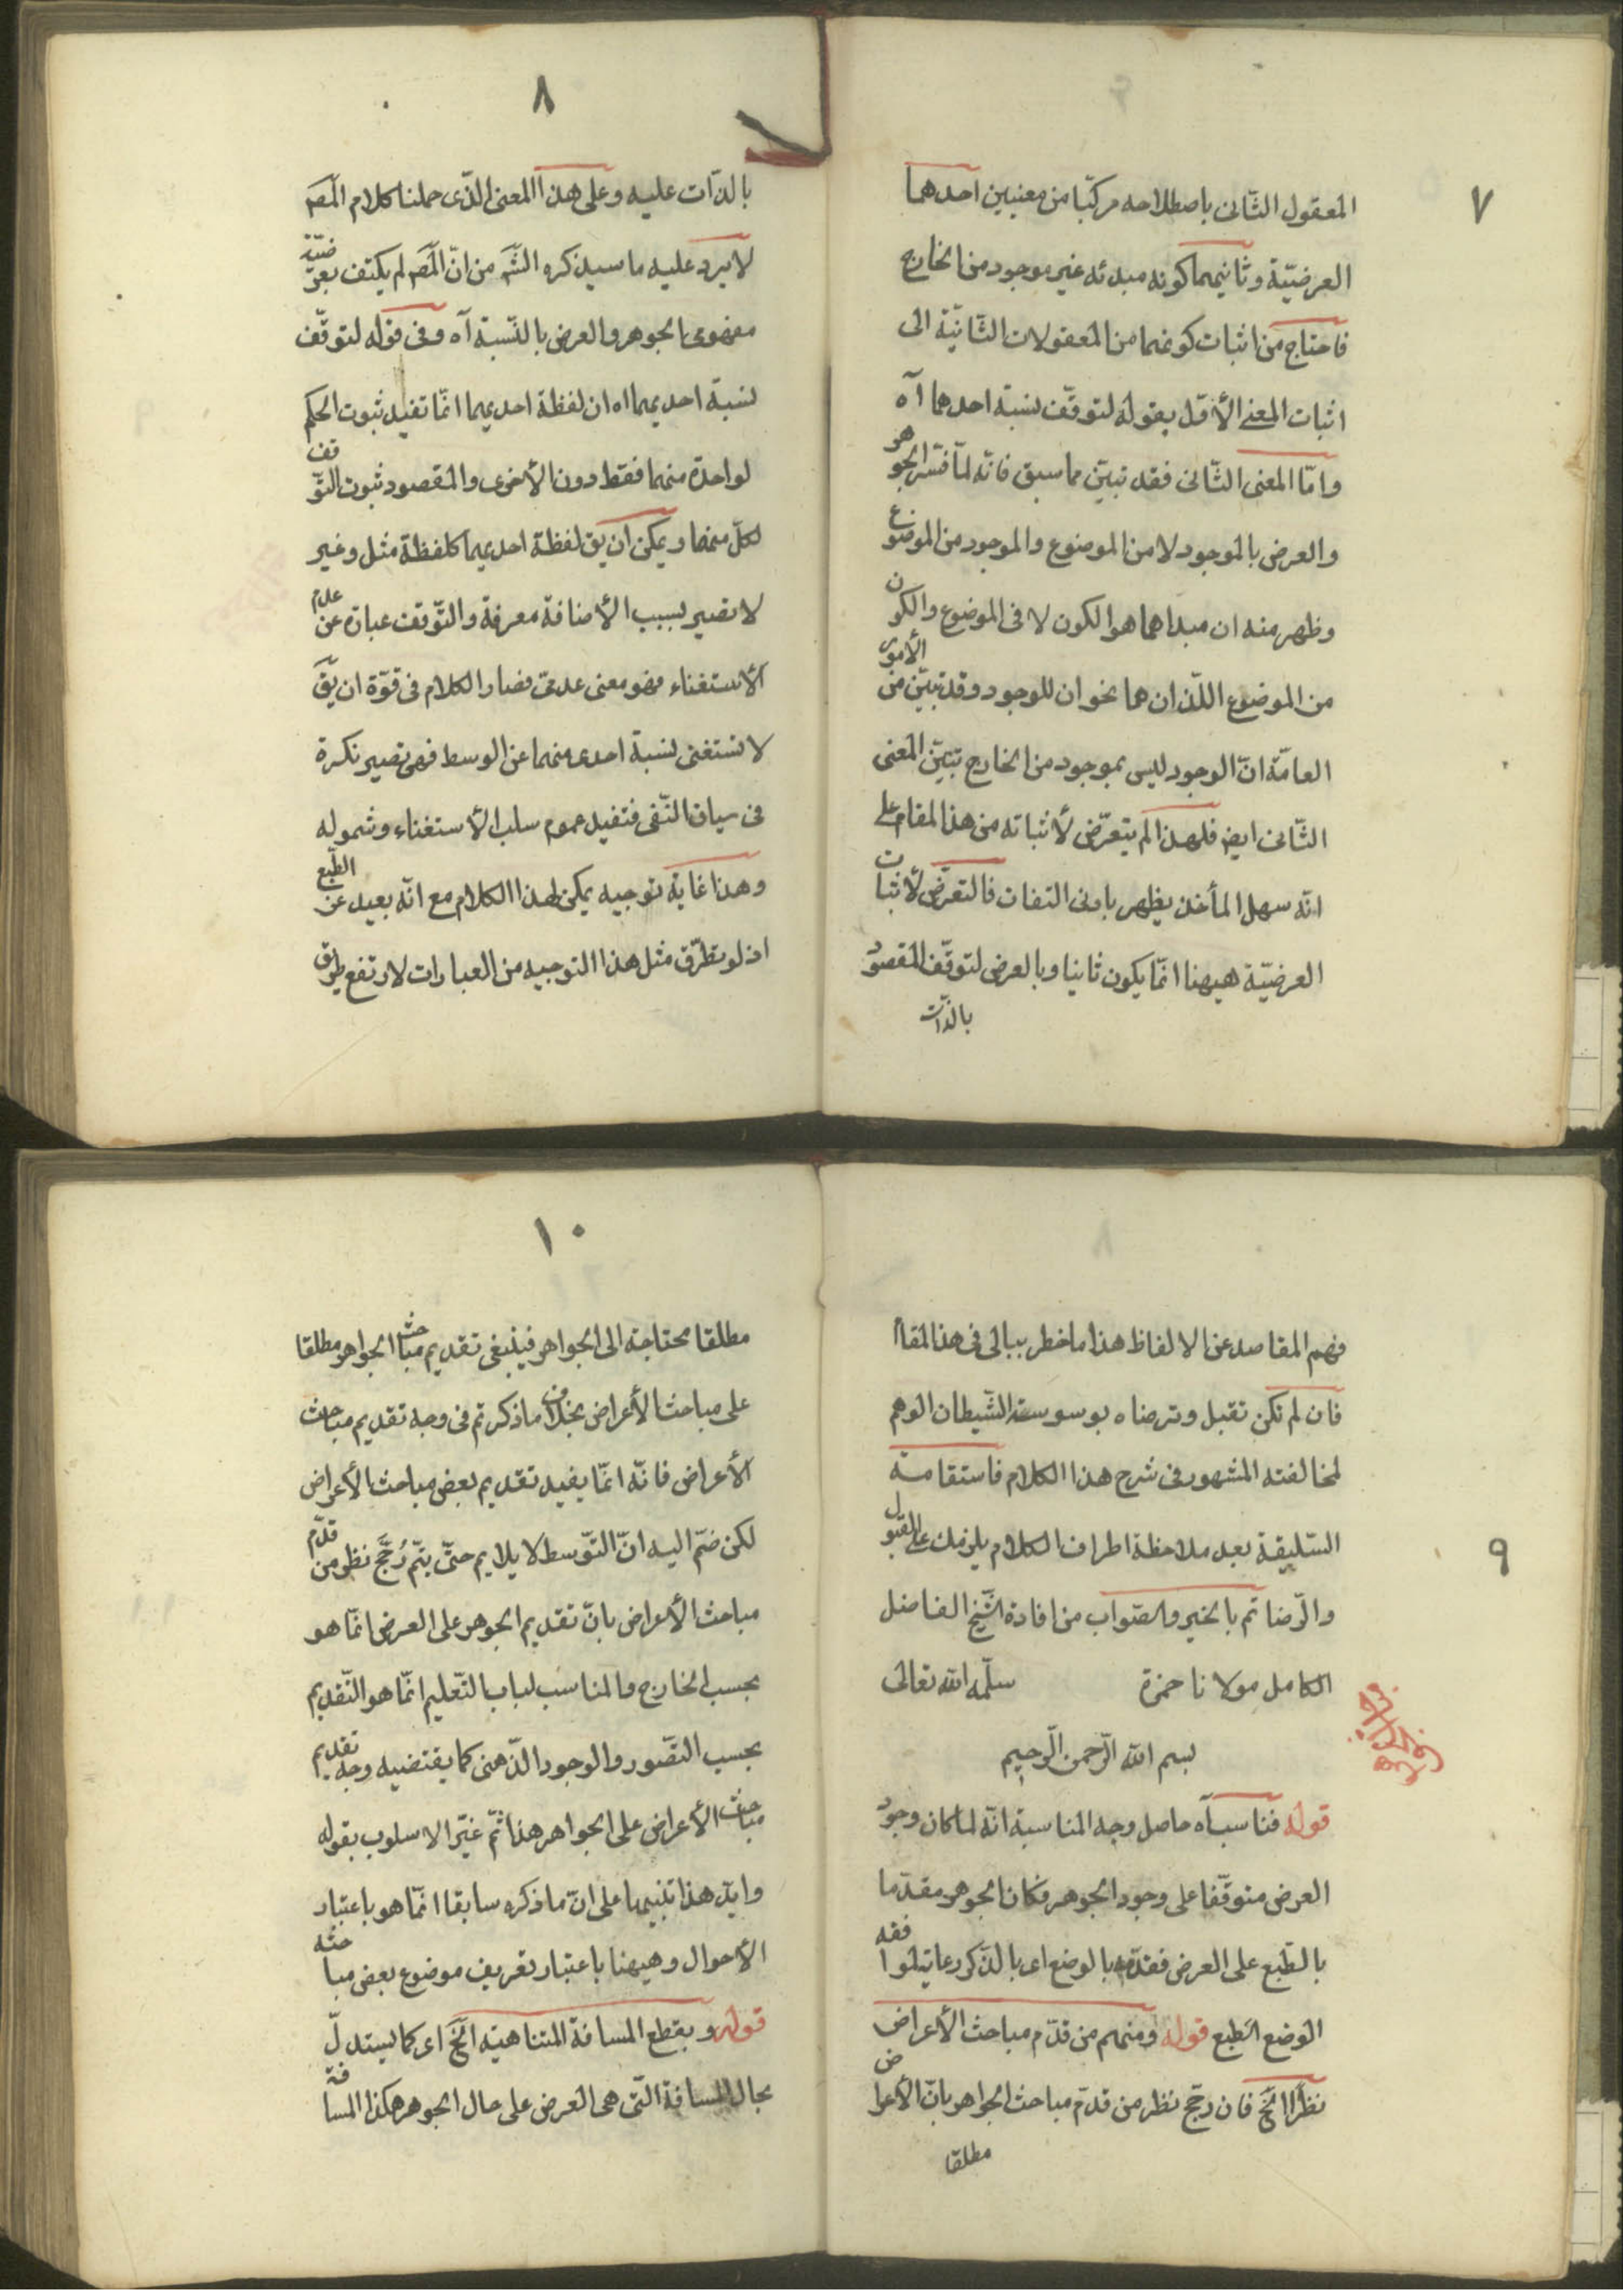 ٧
المعقول الثّانى باصطلاحه مركّبا من معنيين احدهما
العرضيّة وثانيهما كونه مبدئه غير موجود من الخارج
فاحتاج من اثبات كونهما من المعقولات الثّانيّة الى
اثبات المعنى الأوّل بقوله لتوقّف نسبة احدهما آه
وامّا المعنى الثّانى فقد تبيّن مما سبق فانّه لمّا فسّر الجوهر
والعرض بالموجود لا من الموضوع والموجود من الموضوع
وظهر منه ان مبداهما هو الكون لا فى الموضوع والكون
من الموضوع اللّذان هما نحوان للوجود وقد تبيّن من الأمور
العامّة انّ الوجود ليس بموجود من الخارج تبيّن المعنى
الثّانى ايض فلهذا لم يتعرّض لأثباته من هذا المقام على
انّه سهل المأخذ يظهر بادنى التفات فالتعرّض لأثبات
العرضيّة هيهنا انّما يكون ثانيا وبالعرض لتوقّف المقصود
بالذّات
٨
بالذّات عليه وعلى هذا المعنى الذّى حملنا كلام المصَ
لا يرد عليه ما سيذكره الشَ من انّ المصَ لم يكتف بعرضيّة
مفهومى الجوهر والعرض بالنّسبة آه وفى قوله لتوقّف
نسبة احديهما اه ان لفظة احديهما انّما تفيد ثبوت الحكم
لواحدة منهما فقط دون الأخرى والمقصود ثبوت التوّقف
لكلّ منهما ويمكن ان يق لفظة احديهما كلفظة مثل وغير
لا تصير بسبب الأضافة معرفة والتّوقف عبارة عن عدم
الأستغناء فهو معنى عدمىّ فصار الكلام فى قوّة ان يقَ
لا تستغنى نسبة احدى منهما عن الوسط فهى تصير نكرة
فى سياق النّفى فتفيد عموم سلب الأستغناء وشموله
وهذا غاية توجيه يمكن لهذا الكلام مع انّه بعيد عن الطّبع
اذ لو تطرّق مثل هذا التوجيه من العبارات لارتفع طريق
٩
فهم المقاصد عن الالفاظ هذا ما خطر ببالى فى هذا المقام
فان لم تكن تقبل وترضاه بوسوسة الشّيطان الوهم
لمخالفته المشهور فى شرح هذا الكلام فاستقامة
السّليقة بعد ملاحظة اطراف الكلام يلزمك على القبول
والرّضا تم بالخير والصّواب من افادة الشّيخ الفاضل
الكامل مولانا حمزة سلّمه الله تعالى
بسم الله الرّحمن الرّحيم
قوله فناسب آه حاصل وجه المناسبة انّه لما كان وجود
العرض متوقّفا على وجود الجوهر فكان الجوهر مقدّما
بالطّبع على العرض فقدّمه بالوضع اى بالذّكر رعاية لموافقة
الوضع الطبع قوله ومنهم من قدّم مباحث الأعراض
نظرًا الخَ فان رجّح نظر من قدّم مباحث الجواهر بانّ الأعراض
مطلقا
١٠
مطلقا محتاجة الى الجواهر فينبغى تقديم مباحث الجواهر مطلقا
على مباحث الأعراض بخلاف ما ذكرتم فى وجه تقديم مباحث
الأعراض فانّه انّما يفيد تقديم بعض مباحث الأعراض
لكن ضمّ اليه انّ التّوسط لا يلايم حتّى يتمّ رُجَّح نظر من قدّم
مباحث الأعراض بانّ تقديم الجوهر على العرض انّما هو
بحسب الخارج والمناسب لباب التّعليم انّما هو التّقديم
بحسب التصّور والوجود الذّهنى كما يقتضيه وجه تقديم
مباحث الأعراض على الجواهر هذا ثمّ غيّر الاسلوب بقوله
وايدّ هذا تنبيها على انّ ما ذكره سابقا انّما هو باعتبار
الأحوال وهيهنا باعتبار تعريف موضوع بعض مباحثه
قوله وبقطع المسافة المتناهية الخَ اى كما يستدلّ
بحال المسافة الّتى هى العرض على حال الجوهر هكذا المسافة